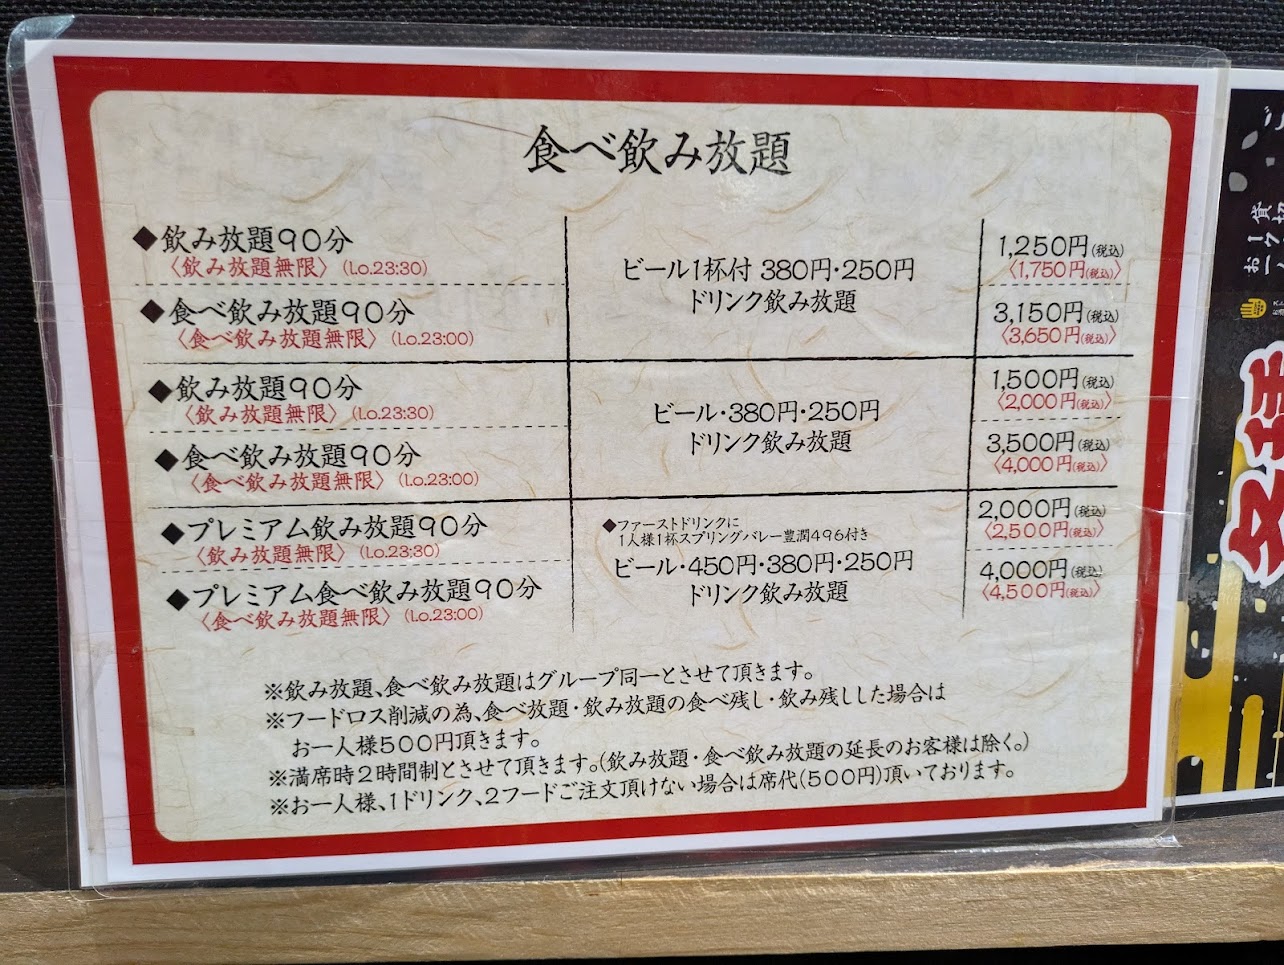 食べ飲み放題
◆飲み放題90分
〈飲み放題無限〉(Lo.23:30)
ビール1杯付 380円・250円
ドリンク飲み放題
1,250円(税込)
〈1,750円(税込)〉
◆食べ飲み放題90分
〈食べ飲み放題無限〉(Lo.23:00)
3,150円(税込)
〈3,650円(税込)〉
◆飲み放題90分
〈飲み放題無限〉(Lo.23:30)
ビール・380円・250円
ドリンク飲み放題
1,500円(税込)
〈2,000円(税込)〉
◆食べ飲み放題90分
〈食べ飲み放題無限〉(Lo.23:00)
3,500円(税込)
〈4,000円(税込)〉
◆プレミアム飲み放題90分
〈飲み放題無限〉(Lo.23:30)
◆ファーストドリンクに
1人様1杯スプリングバレー豊潤496付き
ビール・450円・380円・250円
ドリンク飲み放題
2,000円(税込)
〈2,500円(税込)〉
◆プレミアム食べ飲み放題90分
〈食べ飲み放題無限〉(Lo.23:00)
4,000円(税込)
〈4,500円(税込)〉
※飲み放題、食べ飲み放題はグループ同一とさせて頂きます。
※フードロス削減の為、食べ放題・飲み放題の食べ残し・飲み残しした場合は
お一人様500円頂きます。
※満席時2時間制とさせて頂きます。(飲み放題・食べ飲み放題の延長のお客様は除く。)
※お一人様、1ドリンク、2フードご注文頂けない場合は席代(500円)頂いております。